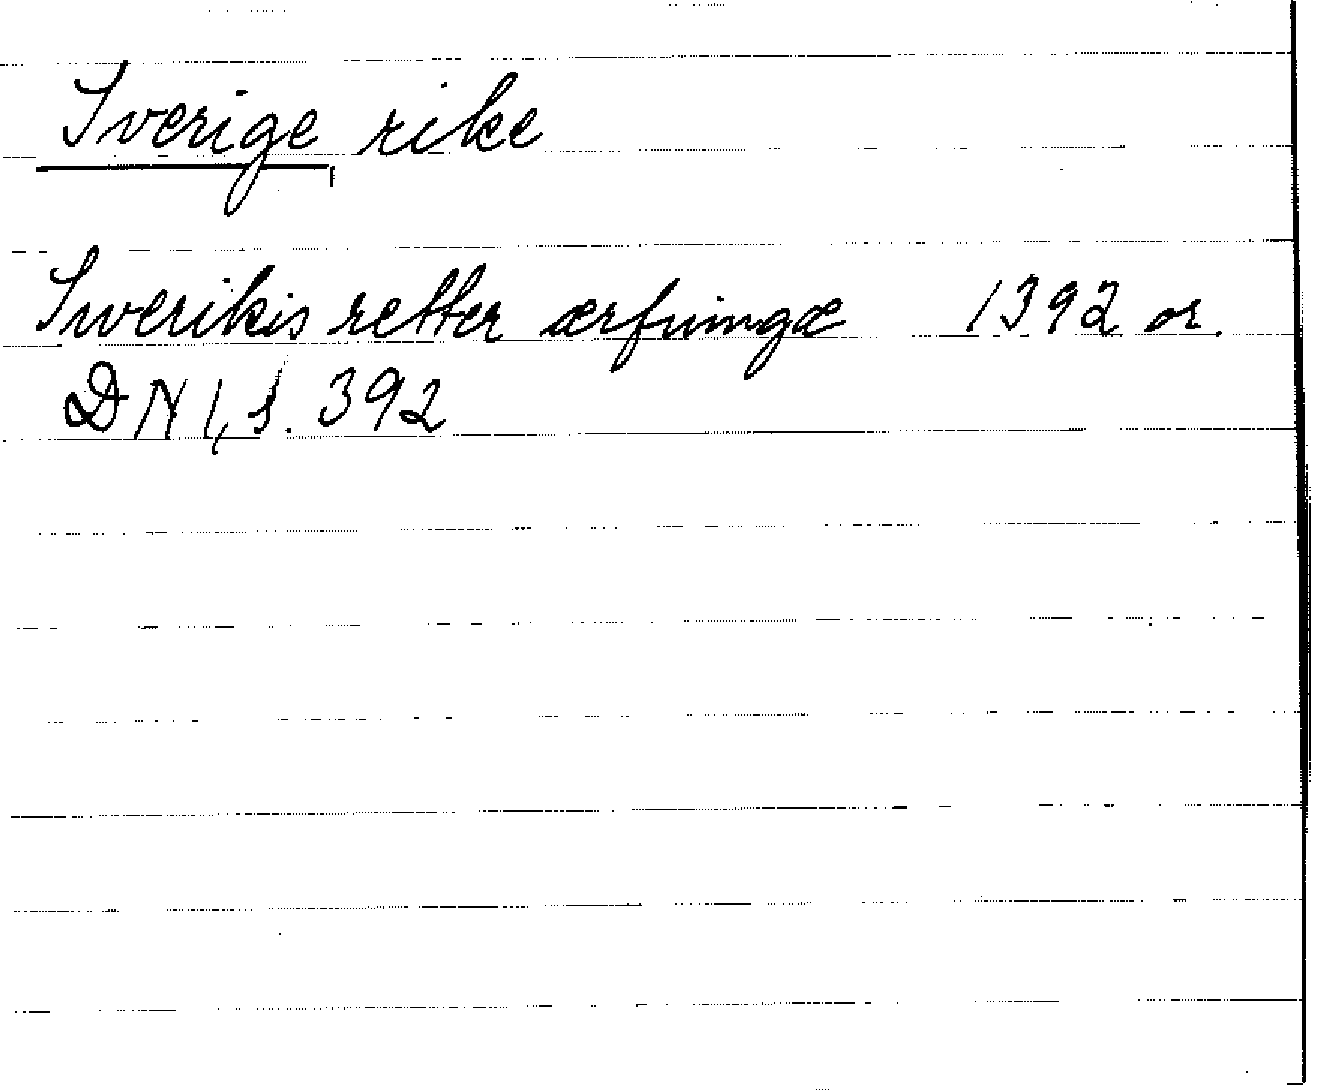 Sverige rike
Swerikis retter ærfuingæ 1392 or.
DN 1, s. 392